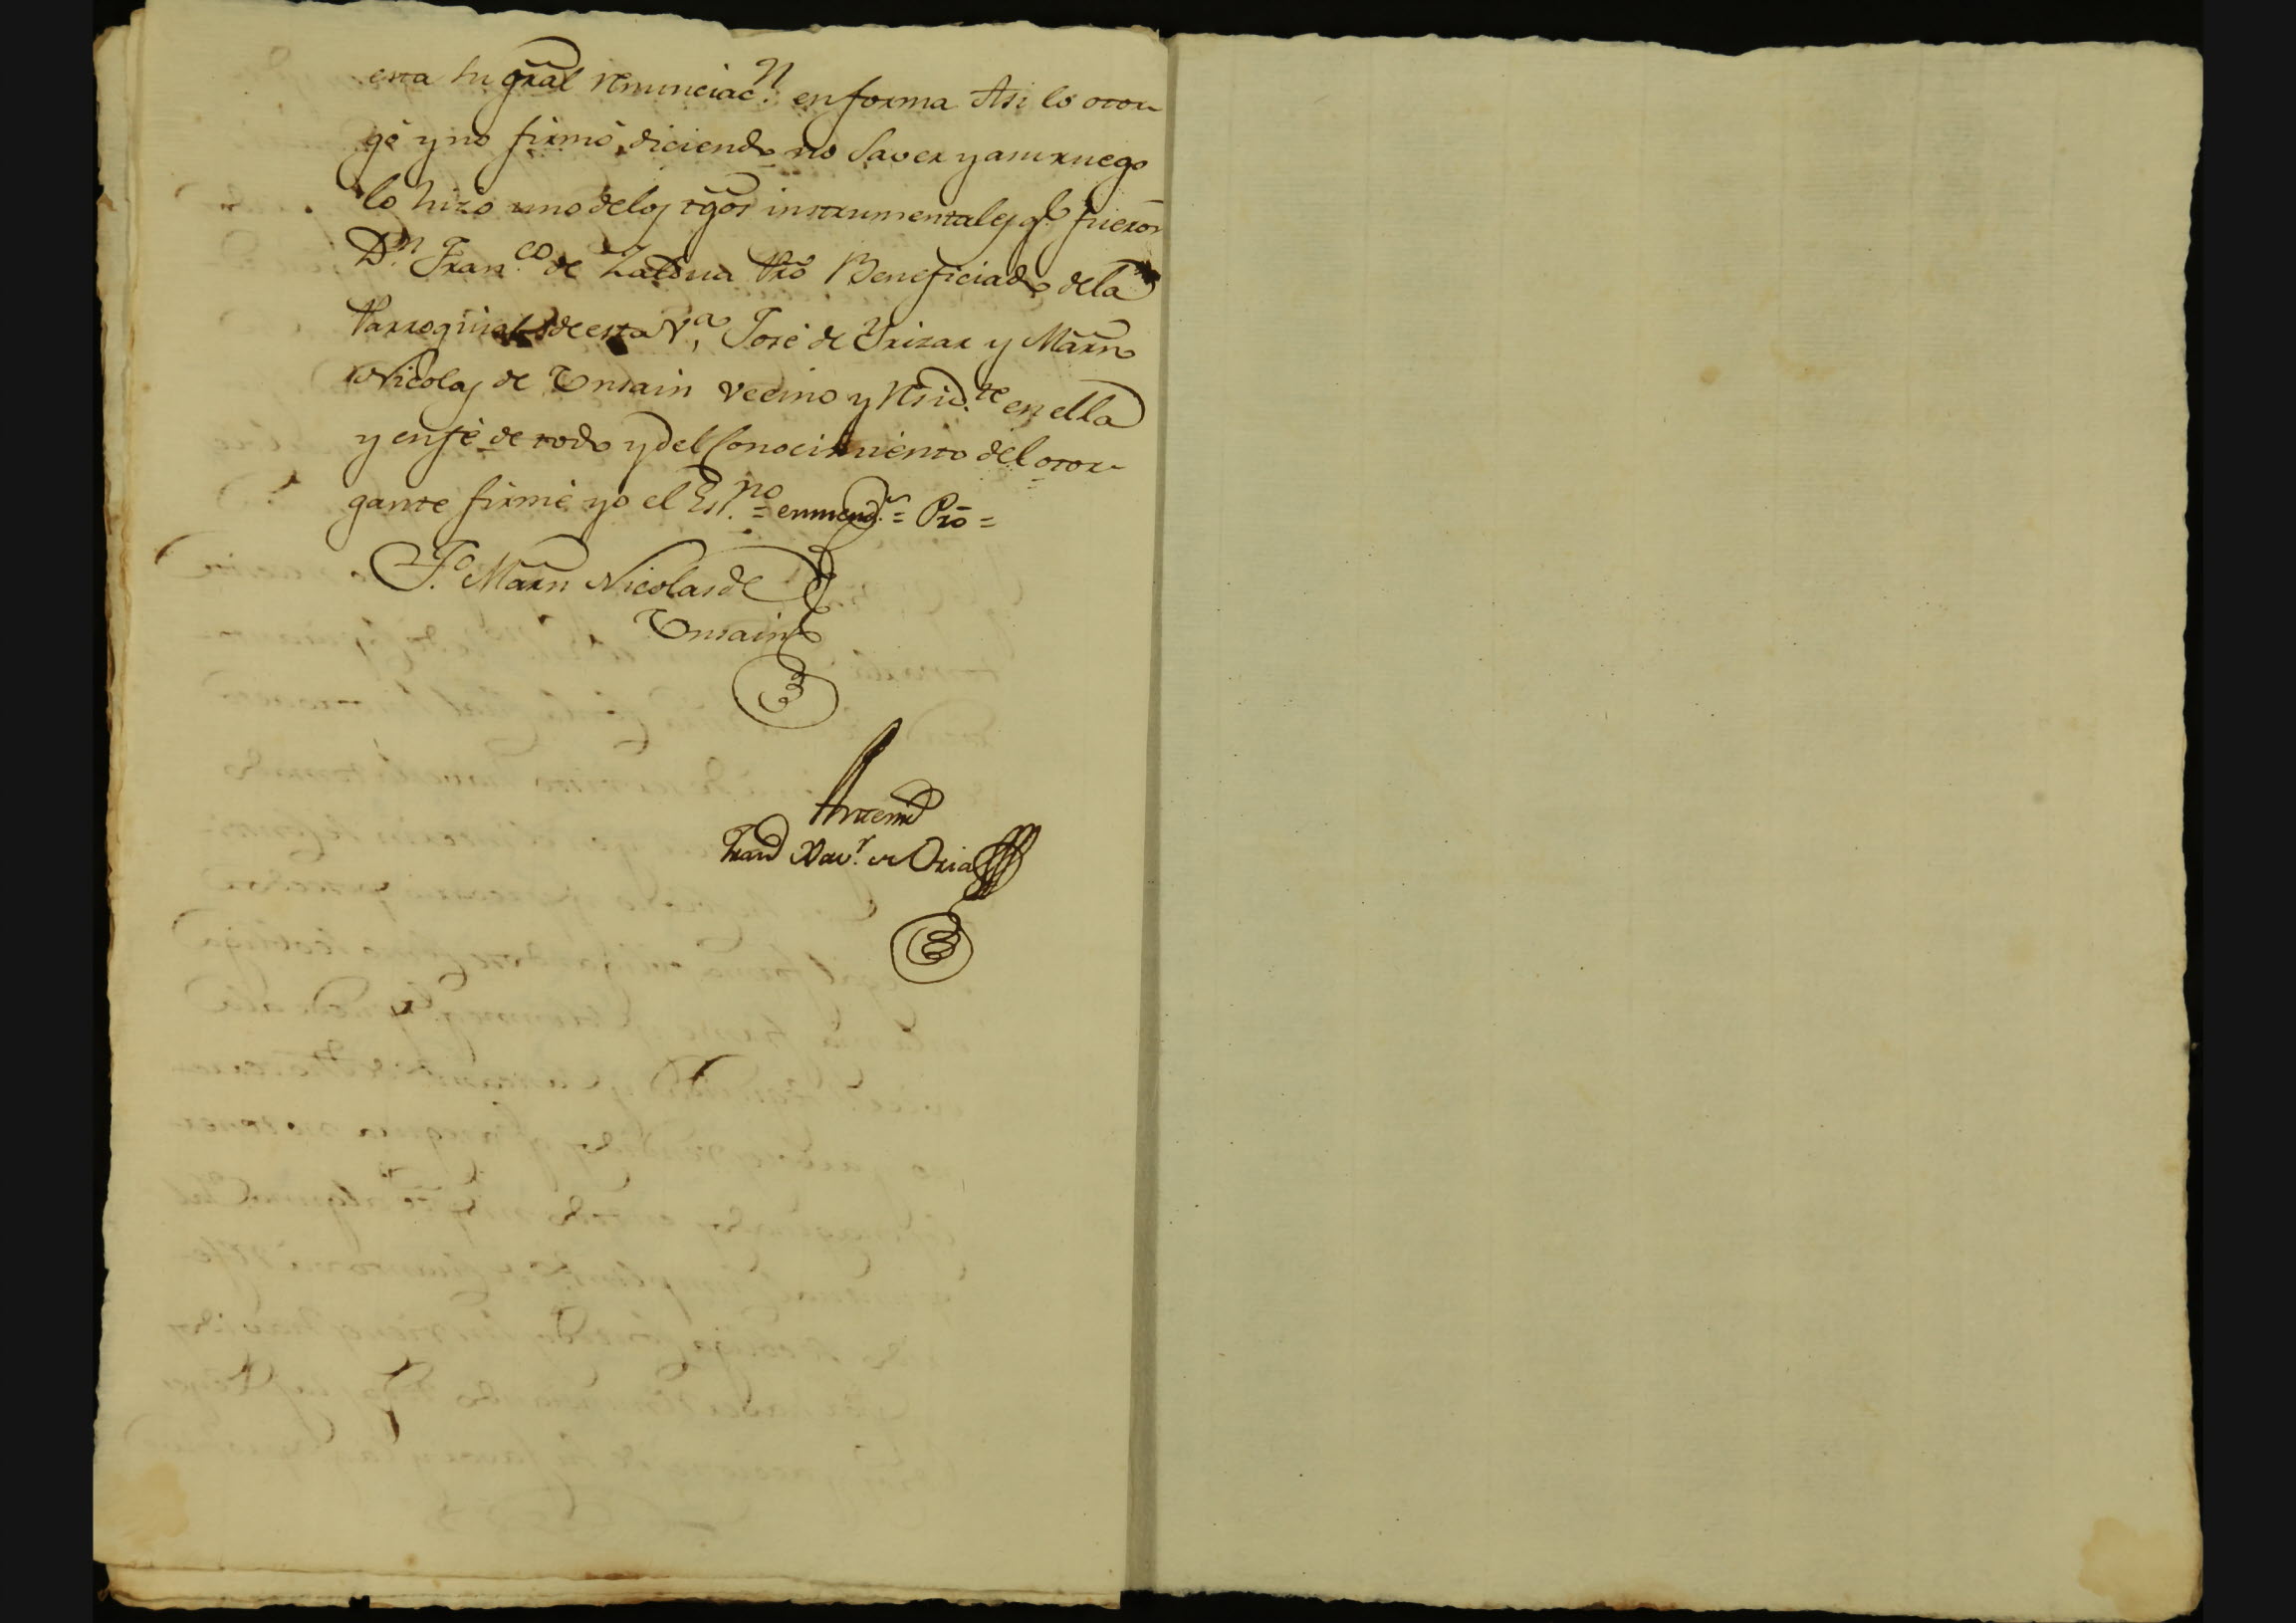 esta su gr̃al renunciac.n en forma Asi lo otor
gò y no firmò, diciendo no saver y a su ruego
lo hizo uno de los tgõs instrumentales q.e fuerõn
D.n Fran.co de Zaldua Prõ Beneficiado de la
Parroquial de esta V.a, Josè de Yrizar y Mãrn
Nicolas de Unsain vecino y resid.te en ella
y en fè de todo y del Conocimiento del otor
gante firmè yo el Es.no = enmend.o = Prõ =
T.o Mãrn Nicolas de
Unsain
Antemi
Fran.co Xav.r de Oria